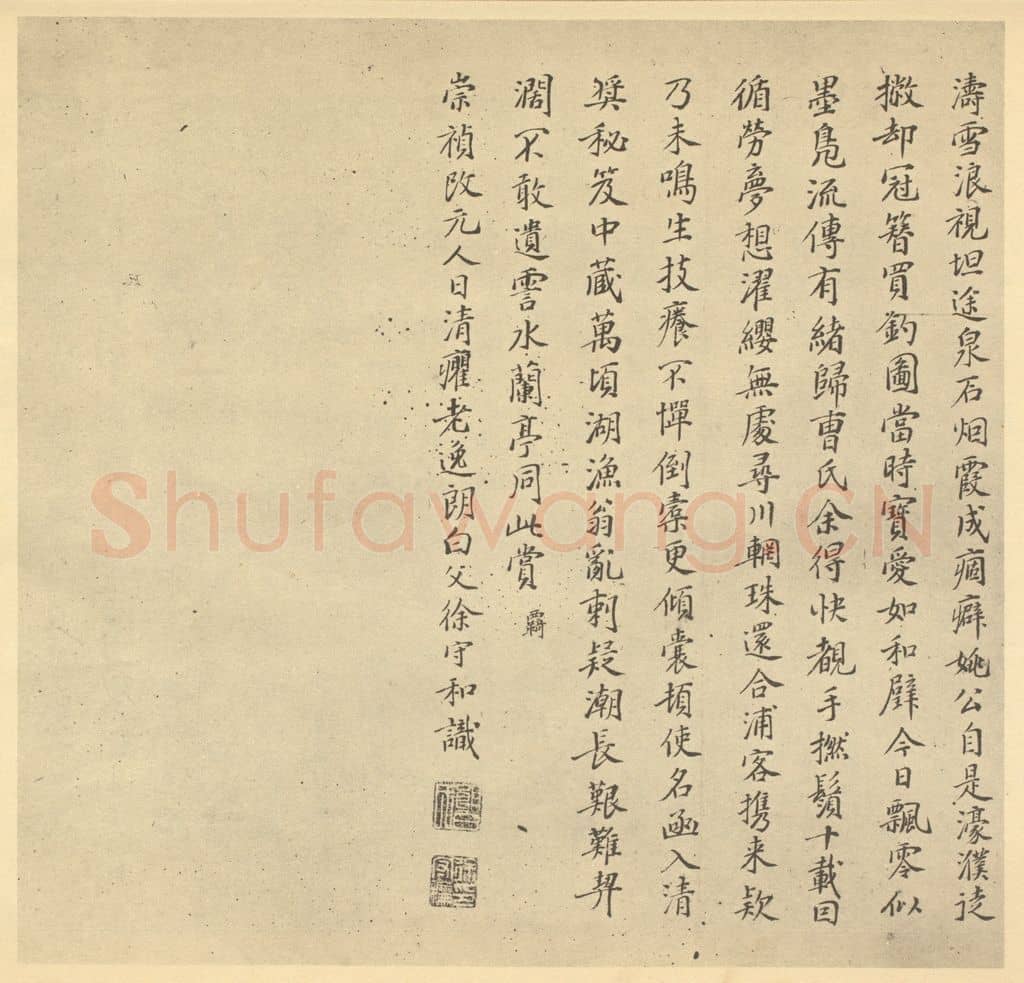 濤雪浪視坦途泉石烟霞成痼癖姚公自是濠濮徒
撇却冠簪買釣圖當時寶愛如和璧今日飄零似
墨鳧流傳有緒歸曹氏余得快覩手撚鬚十載回
循勞夢想濯纓無處尋川輞珠還合浦客携来欵
乃未鳴生技癢不憚倒橐更傾囊頓使名函入清
奨秘笈中蔵萬頃湖漁翁亂刺疑潮長艱難契
濶不敢遺雲水蘭亭同此賞 覇
崇禎改元人日清癯老逸朗白父徐守和識
Shufawang.CN